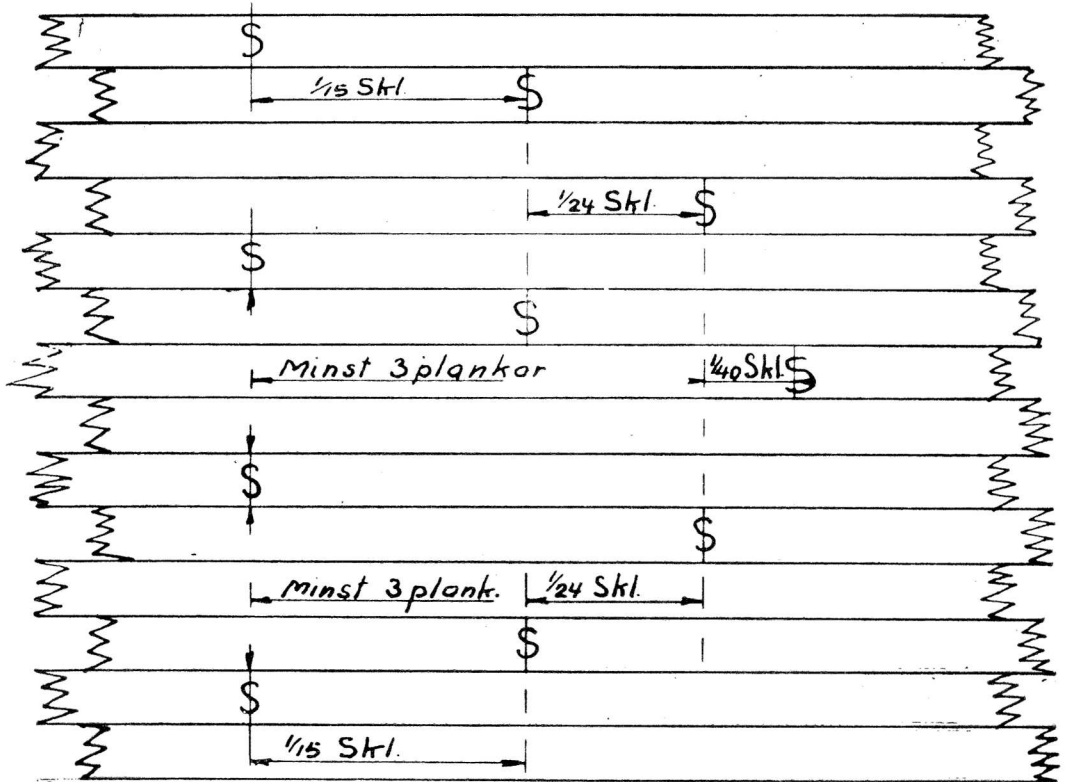 S
1/15 Skl.
S
1/24 Skl.
S
S
S
Minst 3 plankor
1/40 Skl.
S
S
S
Minst 3 plank.
1/24 Skl.
S
S
1/15 Skl.